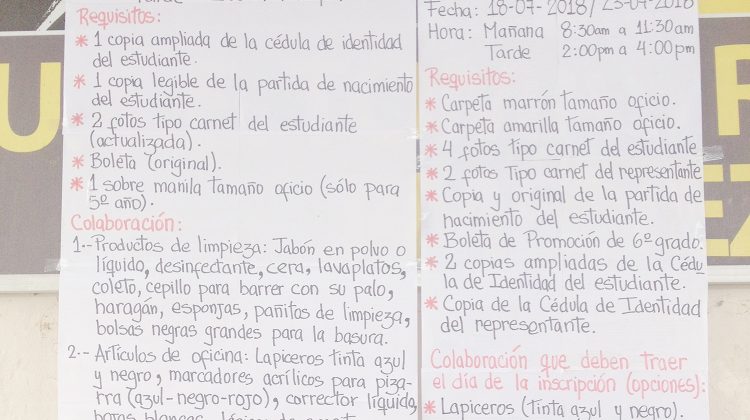 Requisitos:
* 1 copia ampliada de la cédula de identidad
del estudiante.
* 1 copia legible de la partida de nacimiento
del estudiante.
* 2 fotos tipo carnet del estudiante
(actualizada).
* Boleta (original).
* 1 sobre manila tamaño oficio (sólo para
5º año).
Colaboración:
1.-Productos de limpieza: Jabón en polvo o
líquido, desinfectante, cera, lavaplatos,
coleto, cepillo para barrer con su palo,
haragán, esponjas, pañitos de limpieza,
bolsas negras grandes para la basura.
2.- Artículos de oficina: Lapiceros tinta azul
y negro, marcadores acrílicos para piza-
rra (azul-negro-rojo), corrector líquido,
Fecha: 18-07-2018/23-07-2018
Hora: Mañana 8:30am a 11:30am
Tarde 2:00pm a 4:00pm
Requisitos:
* Carpeta marrón tamaño oficio.
* Carpeta amarilla tamaño oficio.
* 4 fotos tipo carnet del estudiante
* 2 fotos Tipo carnet del representante
* Copia y original de la partida de
nacimiento del estudiante.
* Boleta de Promoción de 6º grado.
* 2 copias ampliadas de la Cédu
la de Identidad del estudiante.
* Copia de la Cédula de Identidad
del representante.
Colaboración que deben traer
el día de la inscripción (opciones):
* Lapiceros (Tinta azul y negro).